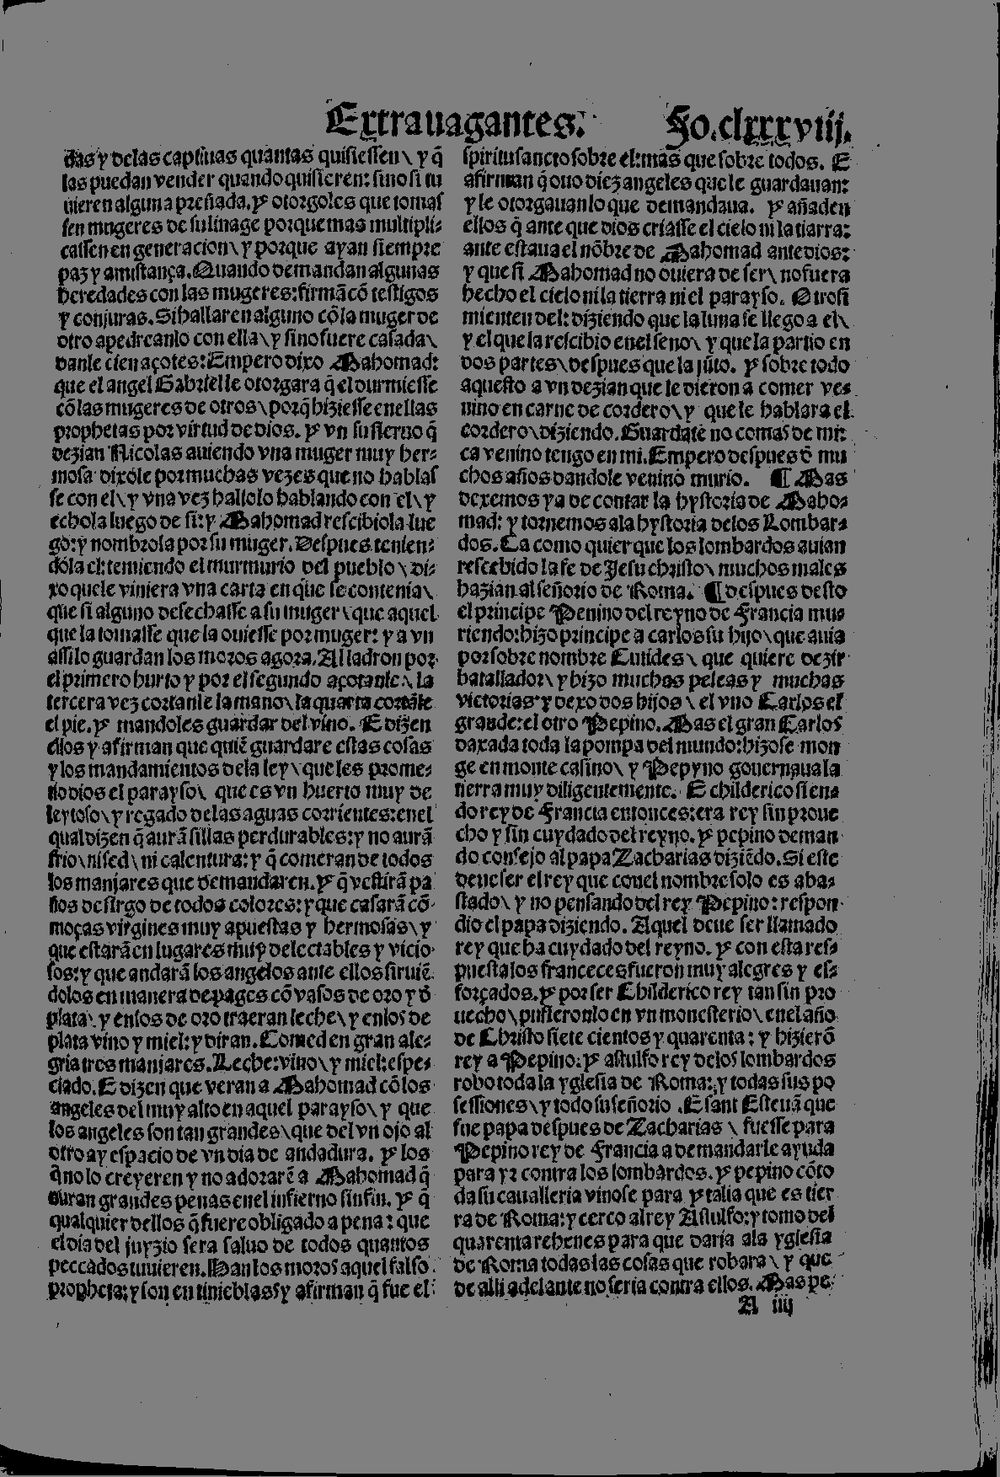 Extrauagantes. Fo.clxxxviij.
das y delas captiuas quantas quisiessen\ y q̃
las puedan vender quando quisieren: sino si tu
uieren alguna preñada. Y otorgoles que tomas
sen mugeres de su linage porque mas multipli-
cassen en generacion\ y porque ayan siempre
paz y amistança. Quando demandan algunas
heredades con las mugeres: firmã cõ testigos
y conjuras. Si hallaren alguno cõ la muger de
otro apedreanlo con ella\ y si no fuere casada\
danle cien açotes: Empero dixo Mahomad:
que el angel Gabriel le otorgara q̃ el durmiesse
cõ las mugeres de otros\ porq̃ hiziesse enellas
prophetas por virtud de dios. Y vn su sieruo q̃
dezian Nicolas auiendo vna muger muy her-
mosa dixole por muchas vezes que no hablas
se con el\ y vna vez hallolo hablando con el\ y
echola luego de si: y Mahomad rescibiola lue
go: y nombrola por su muger. Despues tenien-
dola el: temiendo el murmurio del pueblo\ di-
xo quele viniera vna carta en que se contenia\
que si alguno desechasse a su muger\ que aquel
que la tomasse que la ouiesse por muger: y a vn
assi lo guardan los moros agora. Al ladron por
el primero hurto y por el segundo açotanle\ la
tercera vez cortanle la mano\ la quarta cortãle
el pie. Y mandoles guardar del vino. E dizen
ellos y afirman que quiẽ guardare estas cosas
y los mandamientos dela ley\ que les prome-
tio dios el parayso\ que es vn huerto muy de
leytoso\ y regado delas aguas corrientes: enel
qual dizen q̃ aurã sillas perdurables: y no aurã
frio\ ni sed\ ni calentura: y q̃ comeran de todos
los manjares que demandaren. Y q̃ vestirã pa
ños de sirgo de todos colores: y que casarã cõ
moças virgines muy apuestas y hermosas\ y
que estarã en lugares muy delectables y vicio-
sos: y que andarã los angelos ante ellos siruiẽ
dolos en manera de pages cõ vasos de oro y d̃
plata. y enlos de oro traeran leche\ y enlos de
plata vino y miel: y diran. Comed en gran ale-
gria tres manjares. Leche: vino\ y miel: espe-
ciado. E dizen que veran a Mahomad cõ los
angeles del muy alto en aquel parayso\ y que
los angeles son tan grandes\ que del vn ojo al
otro ay espacio de vn dia de andadura. Y los
q̃ no lo creyeren y no adorarẽ a Mahomad q̃
auran grandes penas enel infierno sin fin. Y q̃
qualquier dellos q̃ fuere obligado a pena: que
el dia del juyzio sera saluo de todos quantos
peccados tuuieren. Han los moros aquel falso
propheta: y son en tinieblas: y afirman q̃ fue el
spiritusancto sobre el: mas que sobre todos. E
afirman q̃ ouo diez angeles que le guardauan:
y le otorgauan lo que demandaua. Y añaden
ellos q̃ ante que dios criasse el cielo ni la tiarra:
ante estaua el nõbre de Mahomad ante dios:
y que si Mahomad no ouiera de ser\ no fuera
hecho el cielo ni la tierra ni el parayso. Otrosi
mienten del: diziendo que la luna se llego a el\
y el que la rescibio enel seno\ y que la partio en
dos partes\ despues que la jũto. Y sobre todo
aquesto a vn dezian que le dieron a comer ve-
nino en carne de cordero\ y que le hablara el
cordero\ diziendo. Guardate no comas de mi:
ca venino tengo en mi. Empero despues d̃ mu
chos años dandole venino murio. ¶ Mas
dexemos ya de contar la hystoria de Maho-
mad: y tornemos ala hystoria delos Lombar-
dos. Ca como quier que los lombardos auian
rescebido la fe de Jesu christo\ muchos males
hazian al señorio de Roma. ¶ despues desto
el principe Penino del reyno de Francia mu-
riendo: hizo principe a carlos su hijo\ que auia
por sobre nombre Cutides\ que quiere dezir
batallador\ y hizo muchas peleas y muchas
victorias\ y dexo dos hijos\ el vno Carlos el
grande: el otro Pepino. Mas el gran Carlos
daxada toda la pompa del mundo: hizose mon
ge en monte casino\ y Pepyno gouernaua la
tierra muy diligentemente. E childerico sien-
do rey de Francia entonces: era rey sin proue
cho y sin cuydado del reyno. Y pepino deman
do consejo al papa Zacharias diziẽdo. Si este
deue ser el rey que conel nombre solo es aba-
stado\ y no pensando del rey Pepino: respon
dio el papa diziendo. Aquel deue ser llamado
rey que ha cuydado del reyno. Y con esta res-
puesta los franceces fueron muy alegres y es-
forçados. Y por ser Childerico rey tan sin pro
uecho\ pusieronlo en vn monesterio\ enel año
de Christo siete cientos y quarenta: y hizierõ
rey a Pepino: Y astulfo rey delos lombardos
robo toda la yglesia de Roma: y todas sus po
sessiones\ y todo su señorio. E sant Esteuã que
fue papa despues de Zacharias\ fuesse para
Pepino rey de Francia a demandarle ayuda
para yr contra los lombardos. Y pepino cõ to
da su caualleria vinose para Ytalia que es tier
ra de Roma: y cerco al rey Astulfo: y tomo del
quarenta rehenes para que daria ala yglesia
de Roma todas las cosas que robara\ y que
de alli adelante no seria contra ellos. Mas pe-
A iiij